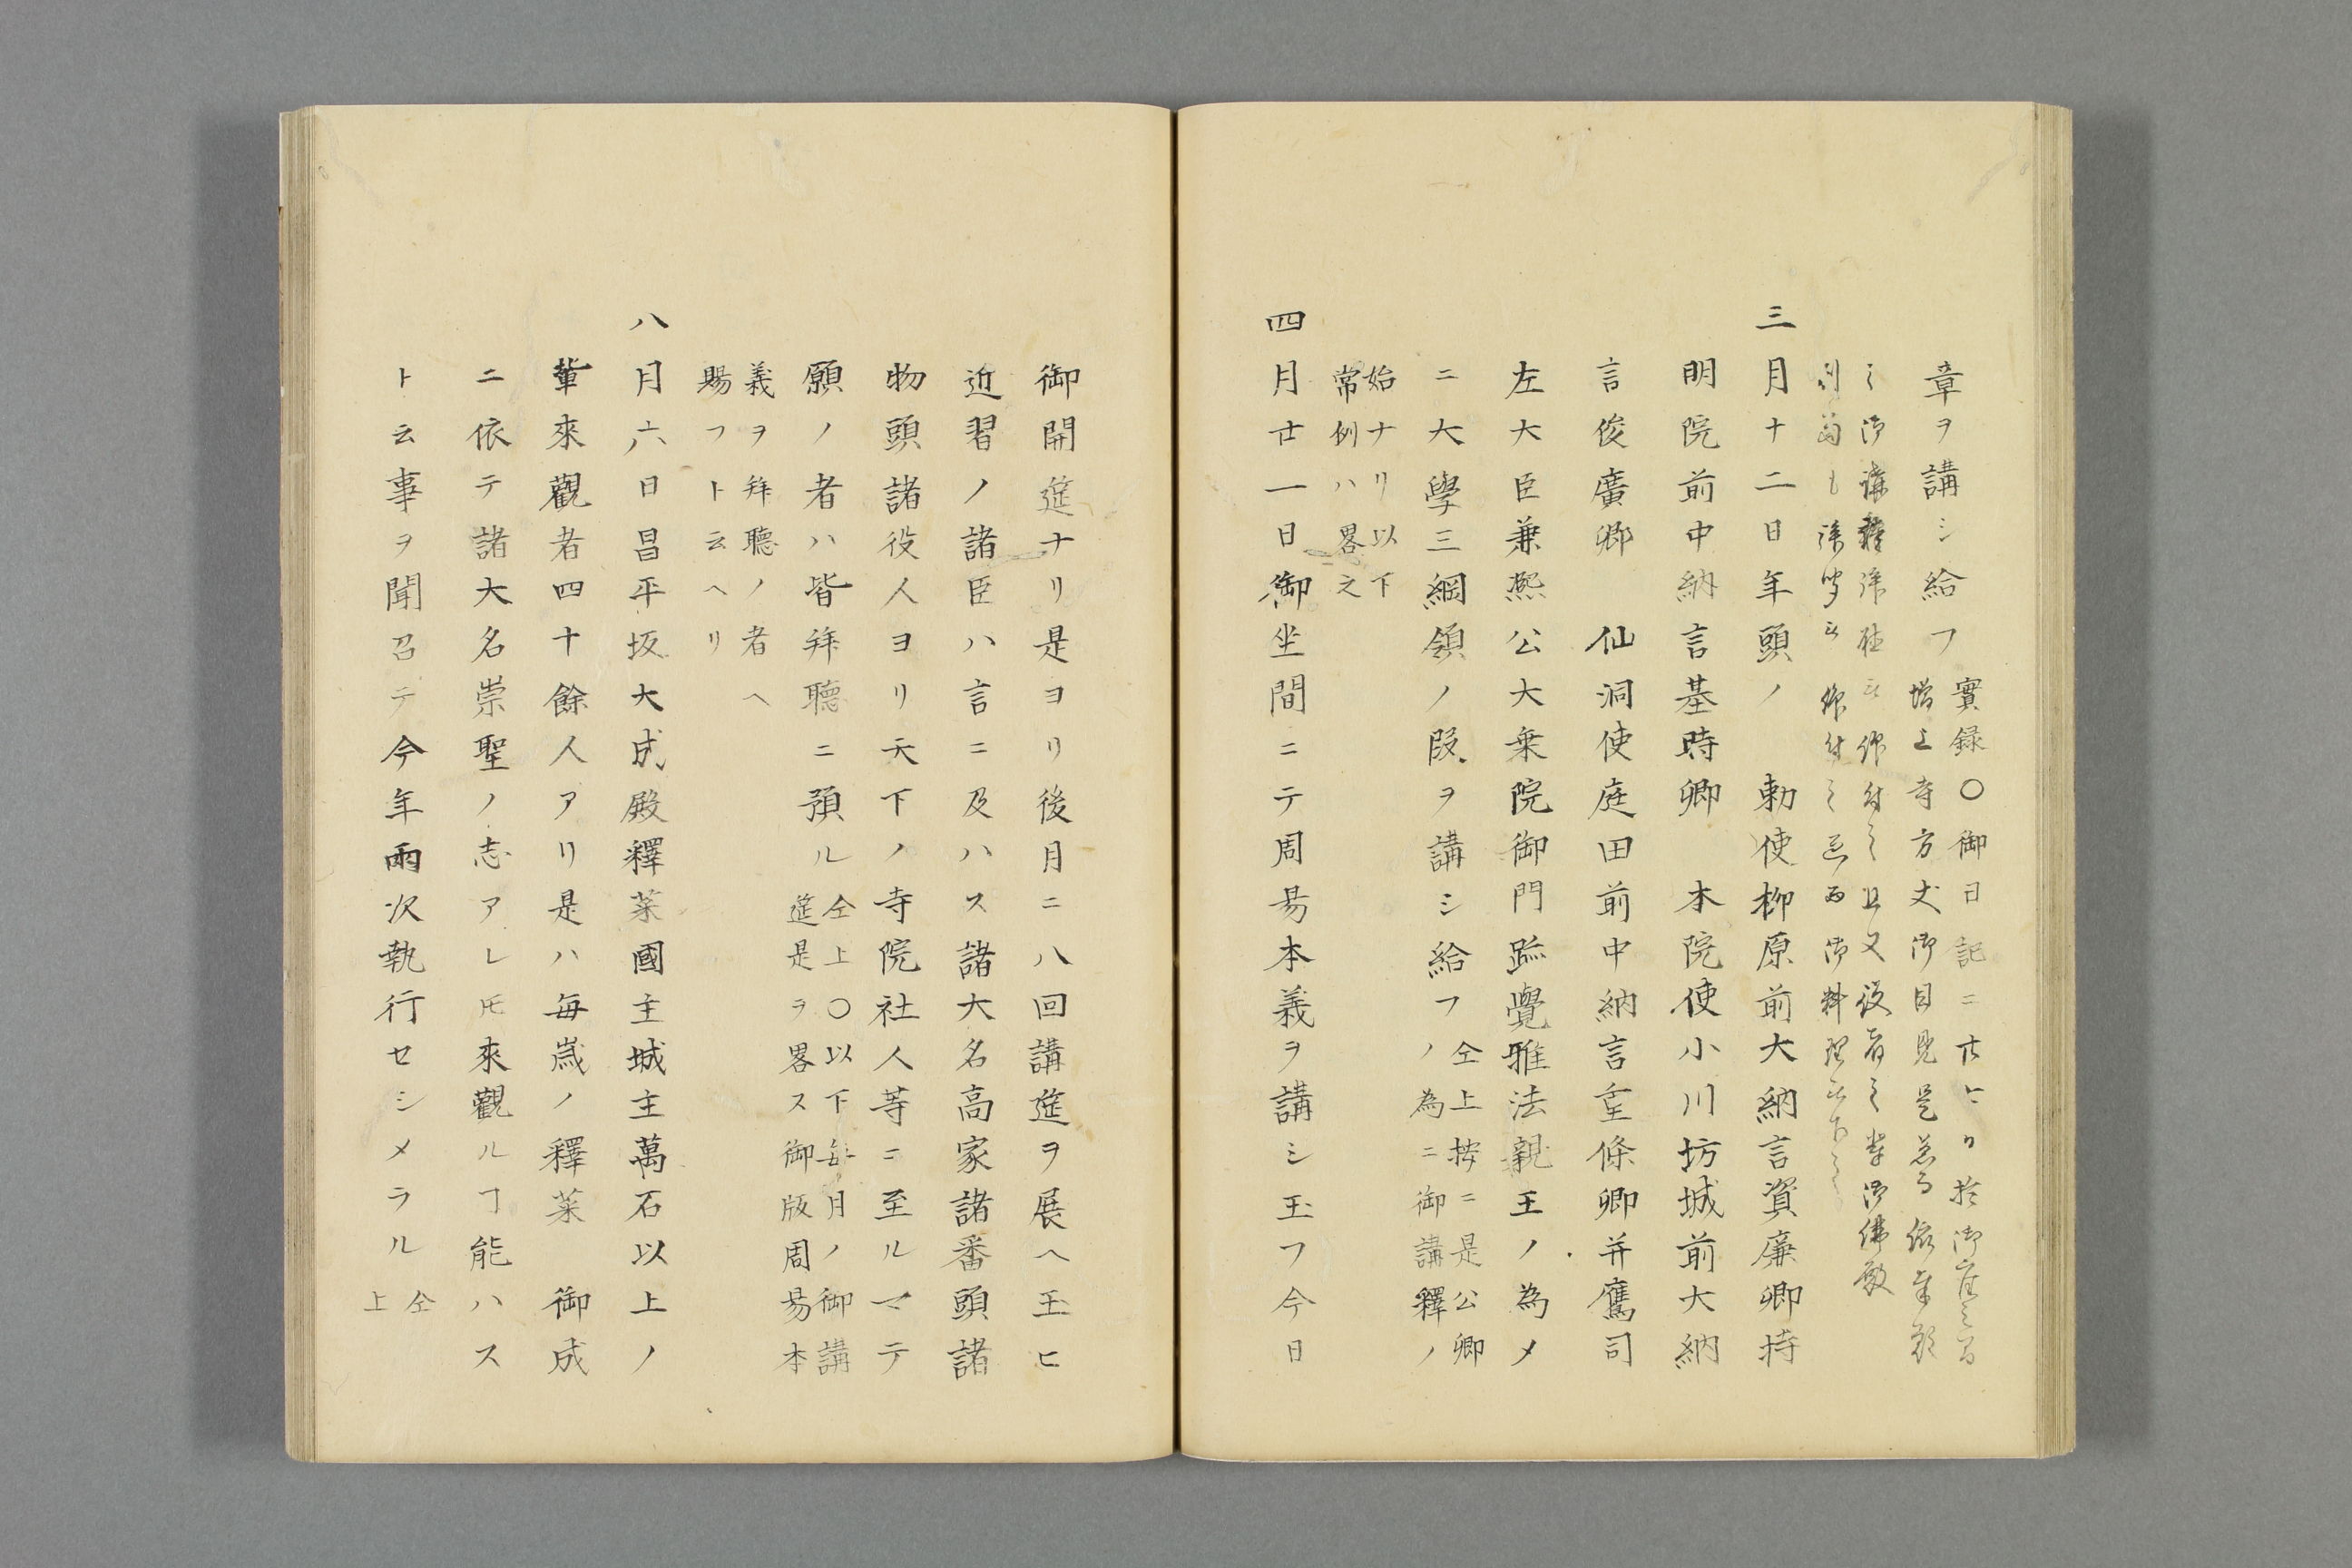 章ヲ講シ給フ
實録〇御日記ニ廿六日於御座之間
増上寺方丈御目見是者依年頭
之御講釋
三月十二日年頭ノ 勅使柳原前大納言資廉卿持
明院前中納言基時卿 本院使小川坊城前大納
言俊廣卿 仙洞使庭田前中納言重條卿并鷹司
左大臣兼熙公大乗院御門跡覺雅法親王ノ為メ
ニ大學三綱領ノ段ヲ講シ給フ
仝上按ニ是公卿
ノ為ニ御講釋ノ
始ナリ以下
常例ハ畧之
四月廿一日御坐間ニテ周易本義ヲ講シ玉フ今日
御開筵ナリ是ヨリ後月ニ八回講筵ヲ展ヘ玉ヒ
近習ノ諸臣ハ言ニ及ハス諸大名高家諸番頭諸
物頭諸役人ヨリ天下ノ寺院社人等ニ至ルマテ
願ノ者ハ皆拜聽ニ預ル
仝上〇以下毎月ノ御講
筵是ヲ畧ス御版周易本
義ヲ拜聽ノ者ヘ
賜フト云ヘリ
八月六日昌平坂大成殿釋菜國主城主萬石以上ノ
輩來觀者四十餘人アリ是ハ毎歳ノ釋菜 御成
ニ依テ諸大名崇聖ノ志アレ𪜈來觀ルヿ能ハス
ト云事ヲ聞召テ今年兩次執行セシメラル
仝
上